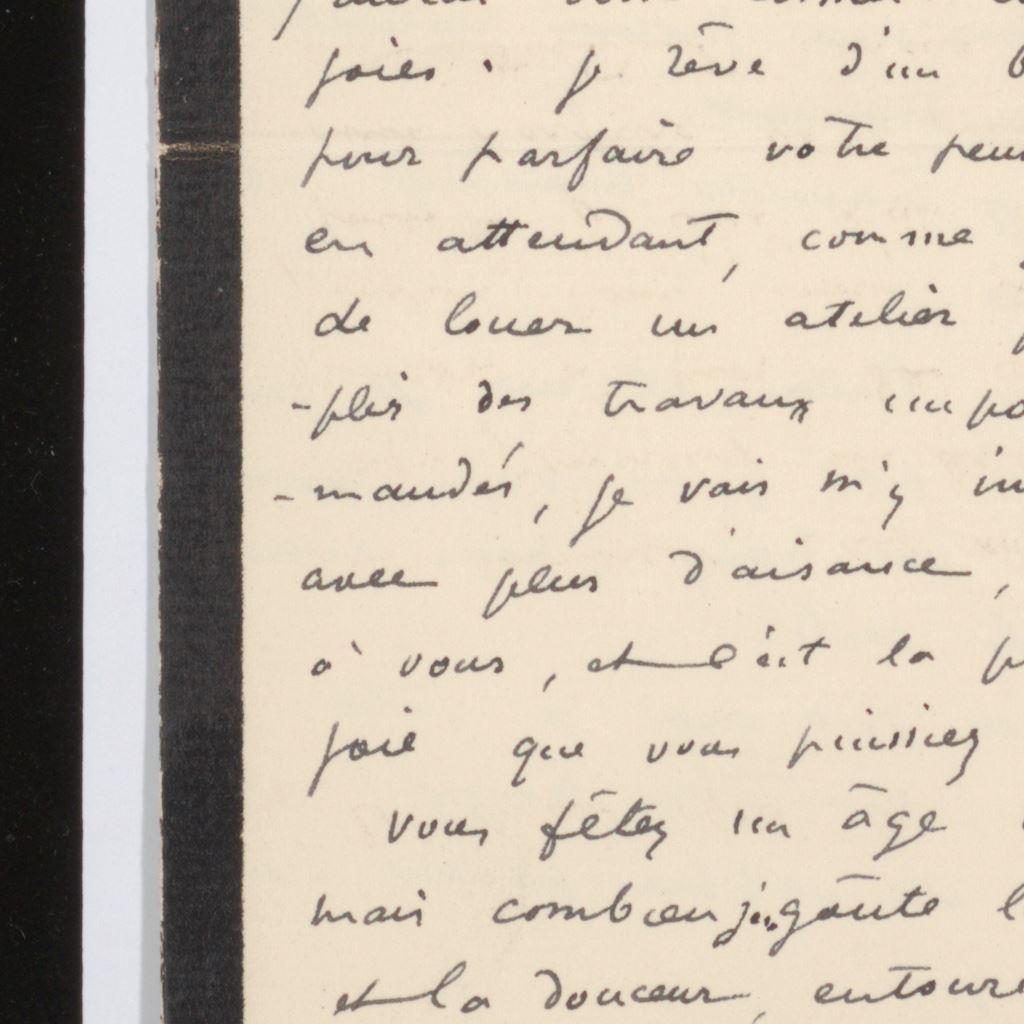 joies. je rêve d'un
pour parfaire votre
en attendant, comme
de louer un atelier
-plir des travaux
-mandés, je vais m'y
avec plus d'aisance,
à vous, et c'est la
joie que vous puissiez
vous fêtez un âge
mais combien j'en goûte
et la douceur, entouré